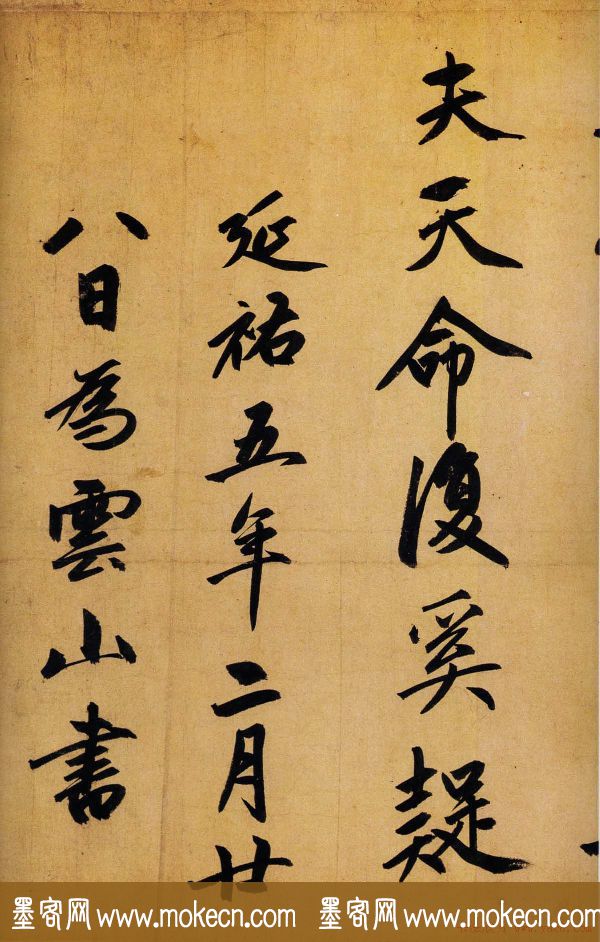 夫天命復奚疑
延祐五年二月廿
八日為雲山書
墨客网 www.mokecn.com 墨客网 www.mokecn.com